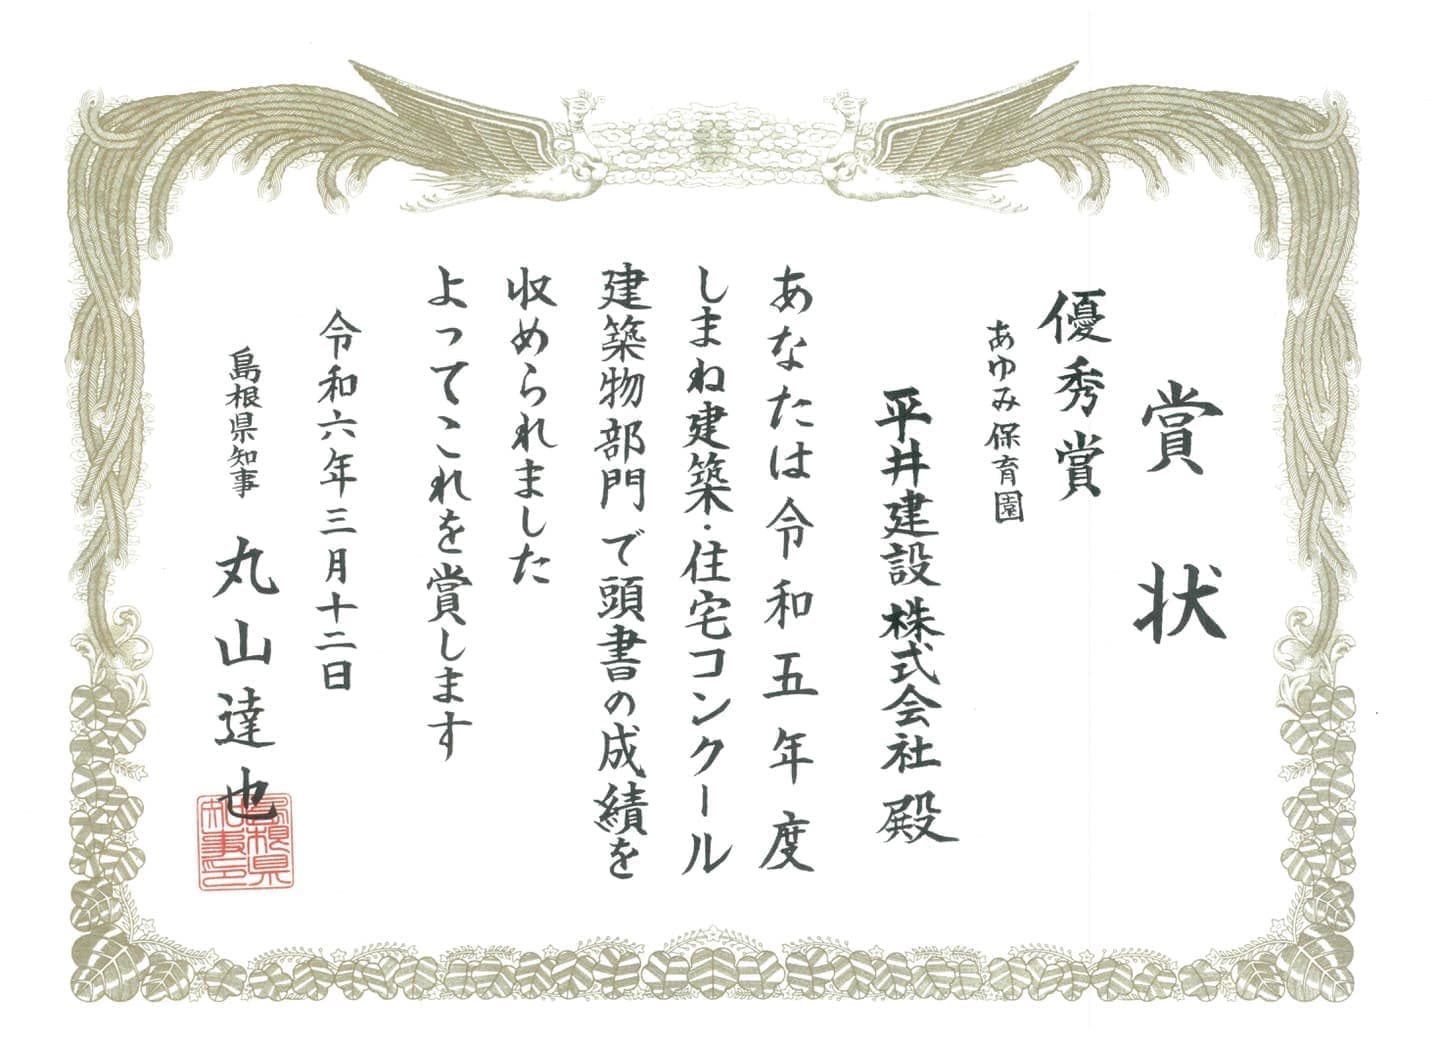 賞状
優秀賞
あゆみ保育園
平井建設株式会社 殿
あなたは令和五年度
しまね建築・住宅コンクール
建築物部門で頭書の成績を
収められました
よってこれを賞します
令和六年三月十二日
島根県知事 丸山達也
島根県
知事印